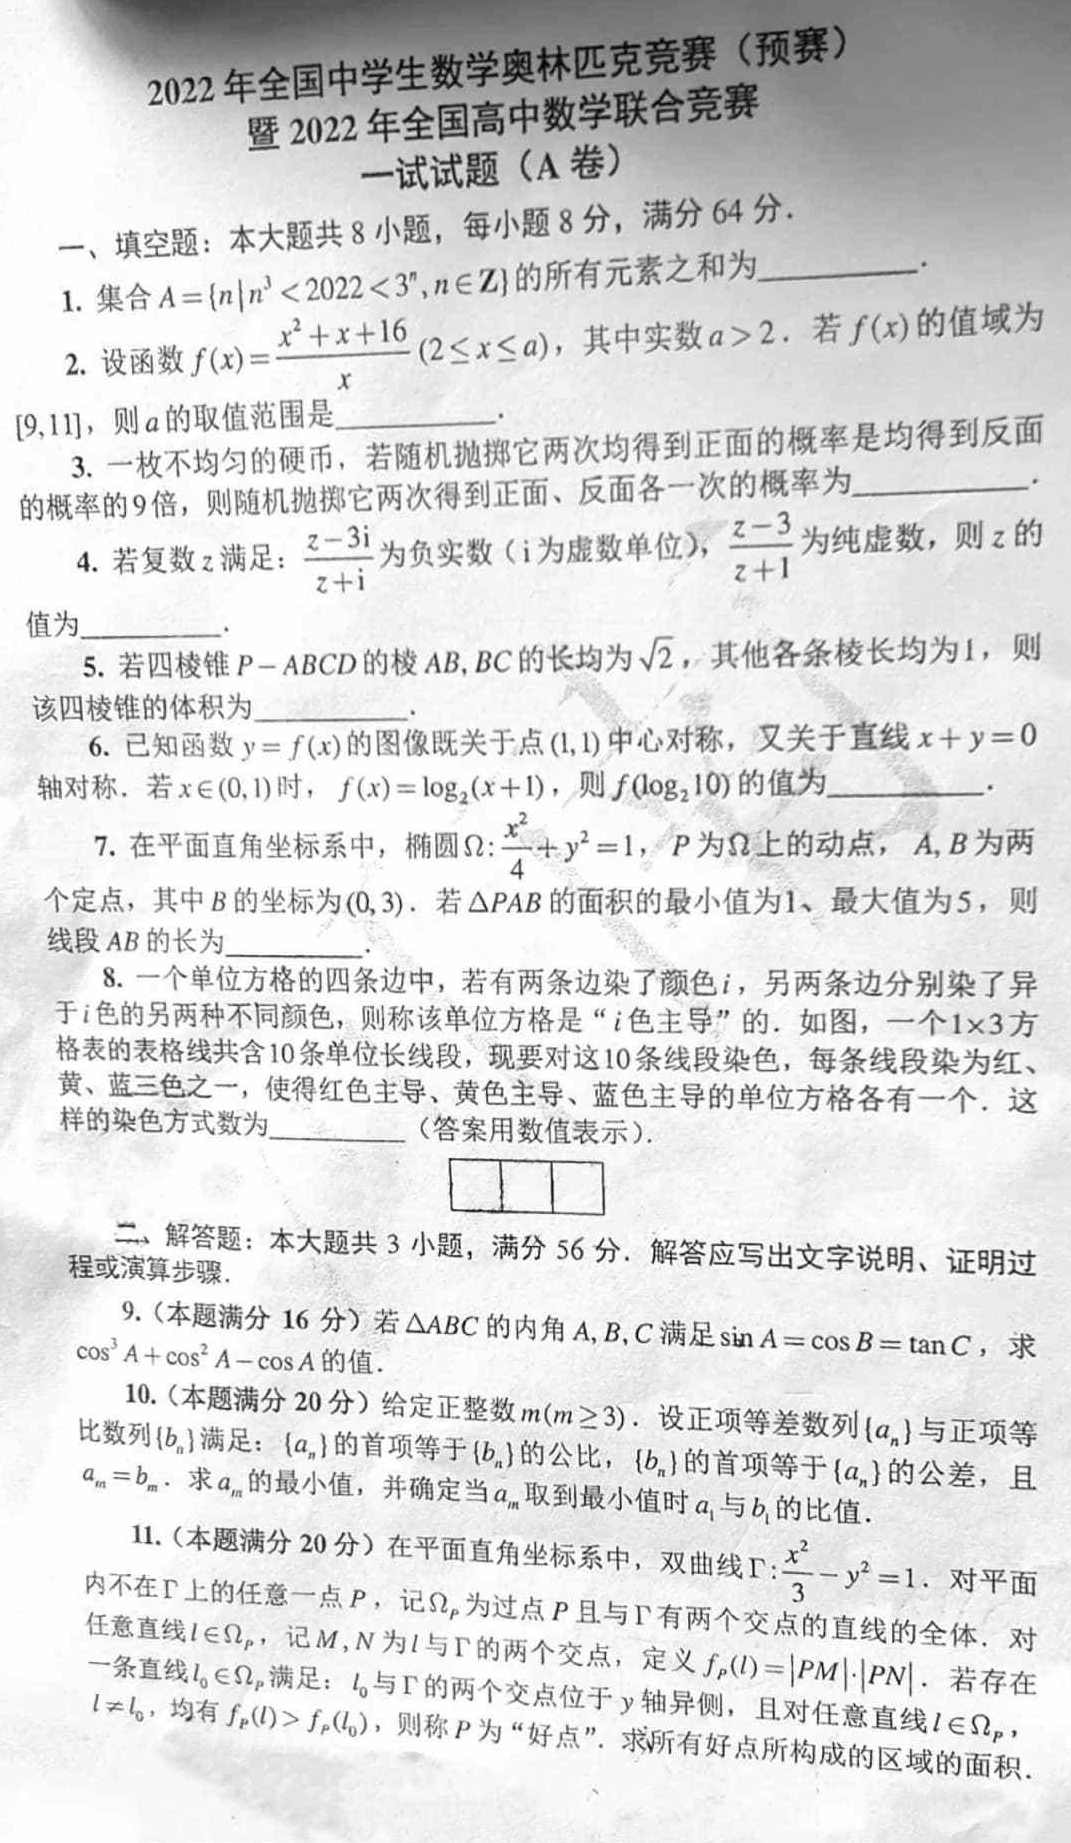 2022年全国中学生数学奥林匹克竞赛（预赛）
暨2022年全国高中数学联合竞赛
一试试题（A卷）
一、填空题：本大题共8小题，每小题8分，满分64分.
1. 集合A={n|n³<2022<3ⁿ,n∈Z}的所有元素之和为________.
2. 设函数f(x)=(x²+x+16)/x (2≤x≤a)，其中实数a>2. 若f(x)的值域为
[9,11]，则a的取值范围是________.
3. 一枚不均匀的硬币，若随机抛掷它两次均得到正面的概率是均得到反面
的概率的9倍，则随机抛掷它两次得到正面、反面各一次的概率为________.
4. 若复数z满足：(z-3i)/(z+i)为负实数（i为虚数单位），(z-3)/(z+1)为纯虚数，则z的
值为________.
5. 若四棱锥P-ABCD的棱AB,BC的长均为√2，其他各条棱长均为1，则
该四棱锥的体积为________.
6. 已知函数y=f(x)的图像既关于点(1,1)中心对称，又关于直线x+y=0
轴对称. 若x∈(0,1)时，f(x)=log₂(x+1)，则f(log₂10)的值为________.
7. 在平面直角坐标系中，椭圆Ω:x²/4+y²=1，P为Ω上的动点，A,B为两
个定点，其中B的坐标为(0,3). 若△PAB的面积的最小值为1、最大值为5，则
线段AB的长为________.
8. 一个单位方格的四条边中，若有两条边染了颜色i，另两条边分别染了异
于i色的另两种不同颜色，则称该单位方格是“i色主导”的. 如图，一个1×3方
格表的表格线共含10条单位长线段，现要对这10条线段染色，每条线段染为红、
黄、蓝三色之一，使得红色主导、黄色主导、蓝色主导的单位方格各有一个. 这
样的染色方式数为________（答案用数值表示）.
二、解答题：本大题共3小题，满分56分. 解答应写出文字说明、证明过
程或演算步骤.
9.（本题满分16分）若△ABC的内角A,B,C满足sin A=cos B=tan C，求
cos³A+cos²A-cos A的值.
10.（本题满分20分）给定正整数m(m≥3). 设正项等差数列{aₙ}与正项等
比数列{bₙ}满足：{aₙ}的首项等于{bₙ}的公比，{bₙ}的首项等于{aₙ}的公差，且
aₘ=bₘ. 求aₘ的最小值，并确定当aₘ取到最小值时a₁与b₁的比值.
11.（本题满分20分）在平面直角坐标系中，双曲线Γ:x²/3-y²=1. 对平面
内不在Γ上的任意一点P，记Ω_P为过点P且与Γ有两个交点的直线的全体. 对
任意直线l∈Ω_P，记M,N为l与Γ的两个交点，定义f_P(l)=|PM|·|PN|. 若存在
一条直线l₀∈Ω_P满足：l₀与Γ的两个交点位于y轴异侧，且对任意直线l∈Ω_P，
l≠l₀，均有f_P(l)>f_P(l₀)，则称P为“好点”. 求所有好点所构成的区域的面积.